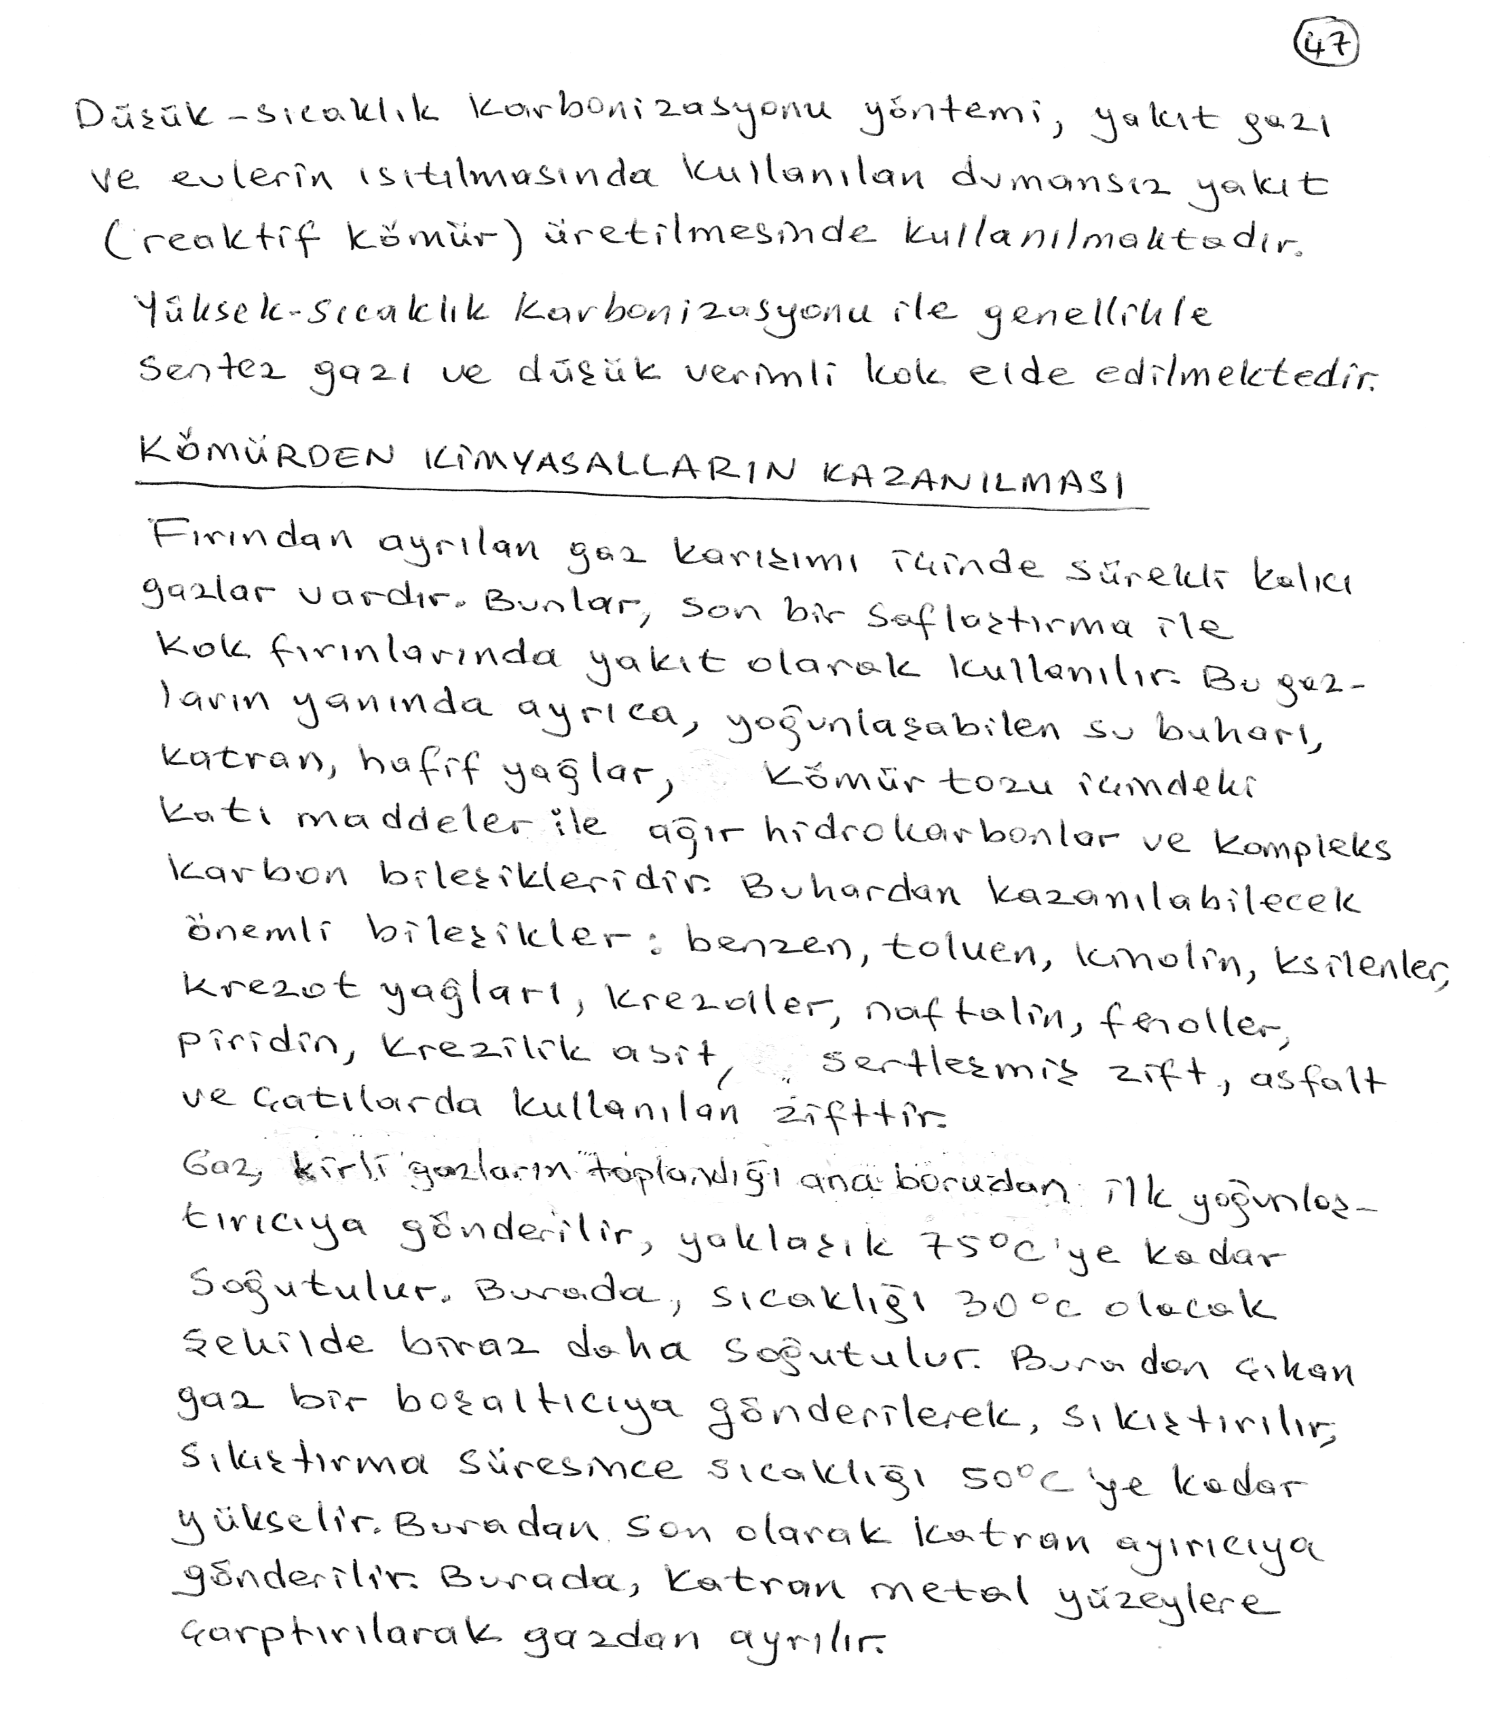 47
Düşük-sıcaklık karbonizasyonu yöntemi, yakıt gazı
ve evlerin ısıtılmasında kullanılan dumansız yakıt
(reaktif kömür) üretilmesinde kullanılmaktadır.
Yüksek-sıcaklık karbonizasyonu ile genellikle
sentez gazı ve düşük verimli kok elde edilmektedir.
KÖMÜRDEN KİMYASALLARIN KAZANILMASI
Fırından ayrılan gaz karışımı içinde sürekli kalıcı
gazlar vardır. Bunlar, son bir saflaştırma ile
kok fırınlarında yakıt olarak kullanılır. Bu gaz-
ların yanında ayrıca, yoğunlaşabilen su buharı,
katran, hafif yağlar, kömür tozu içindeki
katı maddeler ile ağır hidrokarbonlar ve kompleks
karbon bileşikleridir. Buhardan kazanılabilecek
önemli bileşikler: benzen, toluen, kinolin, ksilenler,
krezot yağları, krezoller, naftalin, fenoller,
piridin, krezilik asit, sertleşmiş zift, asfalt
ve çatılarda kullanılan zifttir.
Gaz, kirli gazların toplandığı ana borudan ilk yoğunlaş-
tırıcıya gönderilir, yaklaşık 75°C'ye kadar
soğutulur. Burada, sıcaklığı 30°C olacak
şekilde biraz daha soğutulur. Buradan çıkan
gaz bir boşaltıcıya gönderilerek, sıkıştırılır,
sıkıştırma süresince sıcaklığı 50°C'ye kadar
yükselir. Buradan son olarak katran ayırıcıya
gönderilir. Burada, katran metal yüzeylere
çarptırılarak gazdan ayrılır.